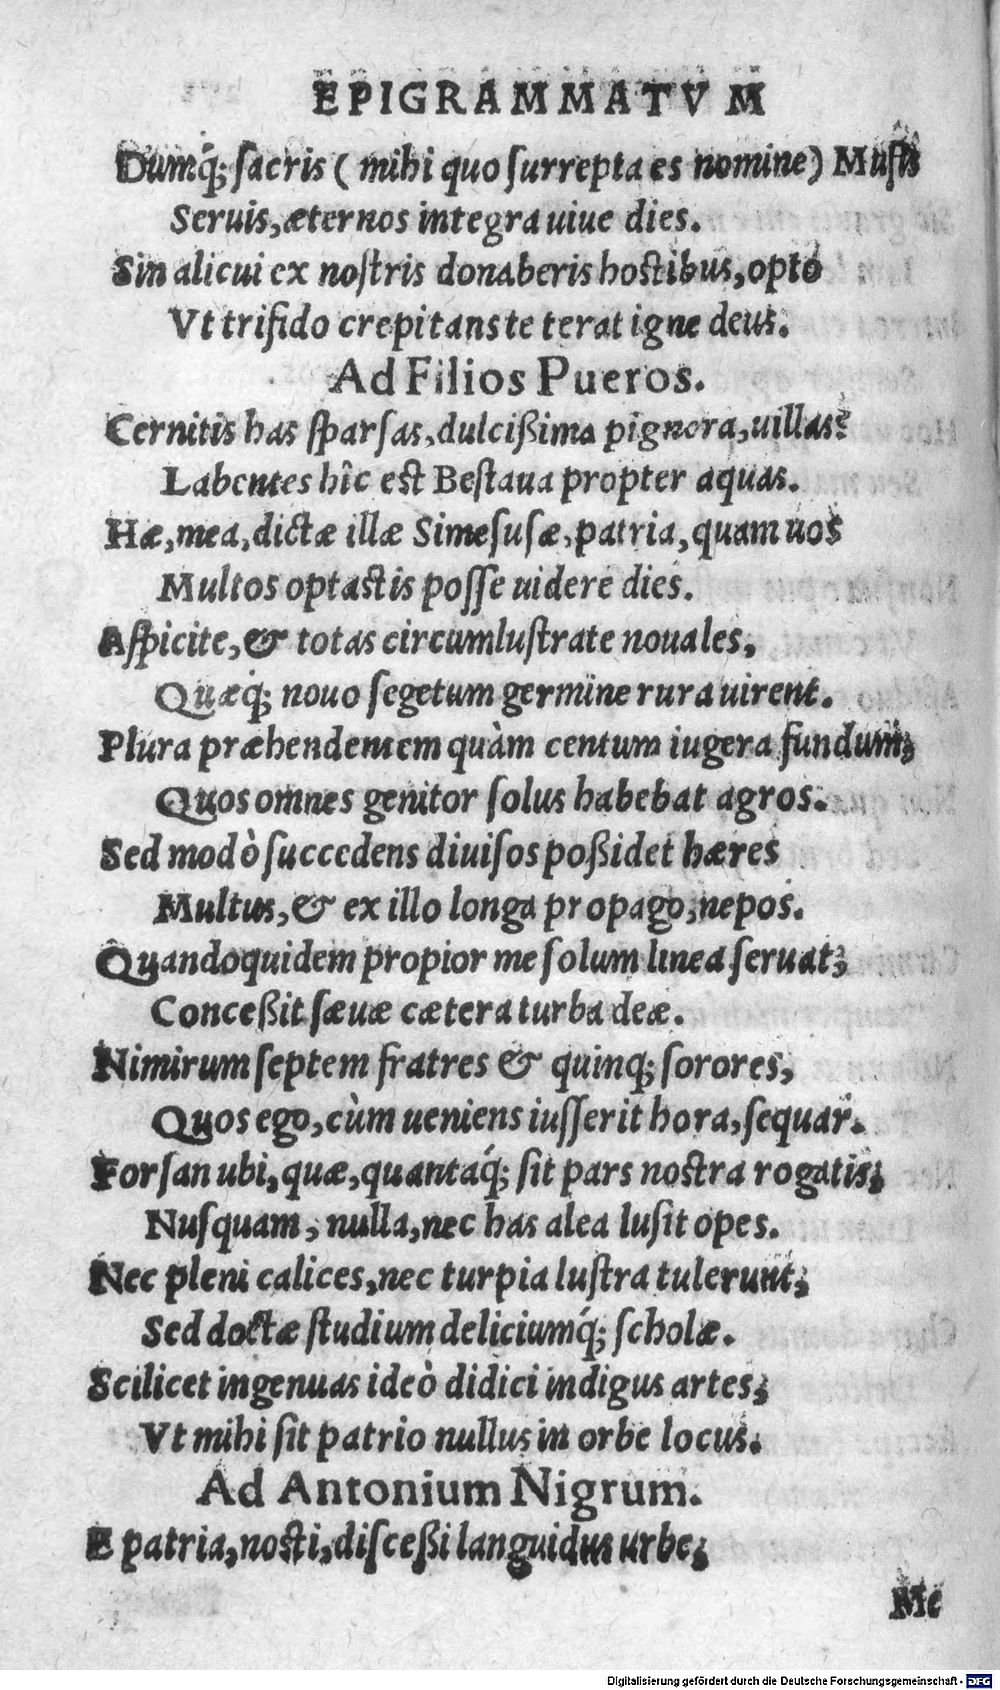 EPIGRAMMATVM
Dumq́; ſacris ( mihi quo ſurrepta es nomine) Muſis
Seruis, æternos integra uiue dies.
Sin alicui ex noſtris donaberis hoſtibus, opto
Vt trifido crepitans te terat igne deus.
Ad Filios Pueros.
Cernitis has ſparſas, dulcißima pignora, uillas?
Labentes hîc eſt Beſtaua propter aquas.
Hæ, mea, dictæ illæ Simeſuſæ, patria, quam uos
Multos optaſtis poſſe uidere dies.
Aſpicite, & totas circumluſtrate nouales,
Quæq́; nouo ſegetum germine rura uirent.
Plura præhendentem quàm centum iugera fundum;
Quos omnes genitor ſolus habebat agros.
Sed modò ſuccedens diuiſos poßidet hæres
Multus, & ex illo longa propago, nepos.
Quandoquidem propior me ſolum linea ſeruat;
Conceßit ſæuæ cætera turba deæ.
Nimirum ſeptem fratres & quinq; ſorores,
Quos ego, cùm ueniens iuſſerit hora, ſequar.
Forſan ubi, quæ, quantaq́; ſit pars noſtra rogatis;
Nuſquam, nulla, nec has alea luſit opes.
Nec pleni calices, nec turpia luſtra tulerunt;
Sed doctæ ſtudium deliciumq́; ſcholæ.
Scilicet ingenuas ideò didici indigus artes;
Vt mihi ſit patrio nullus in orbe locus.
Ad Antonium Nigrum.
E patria, noſti, diſceßi languidus urbe;
Me
Digitalisierung gefördert durch die Deutsche Forschungsgemeinschaft - DFG